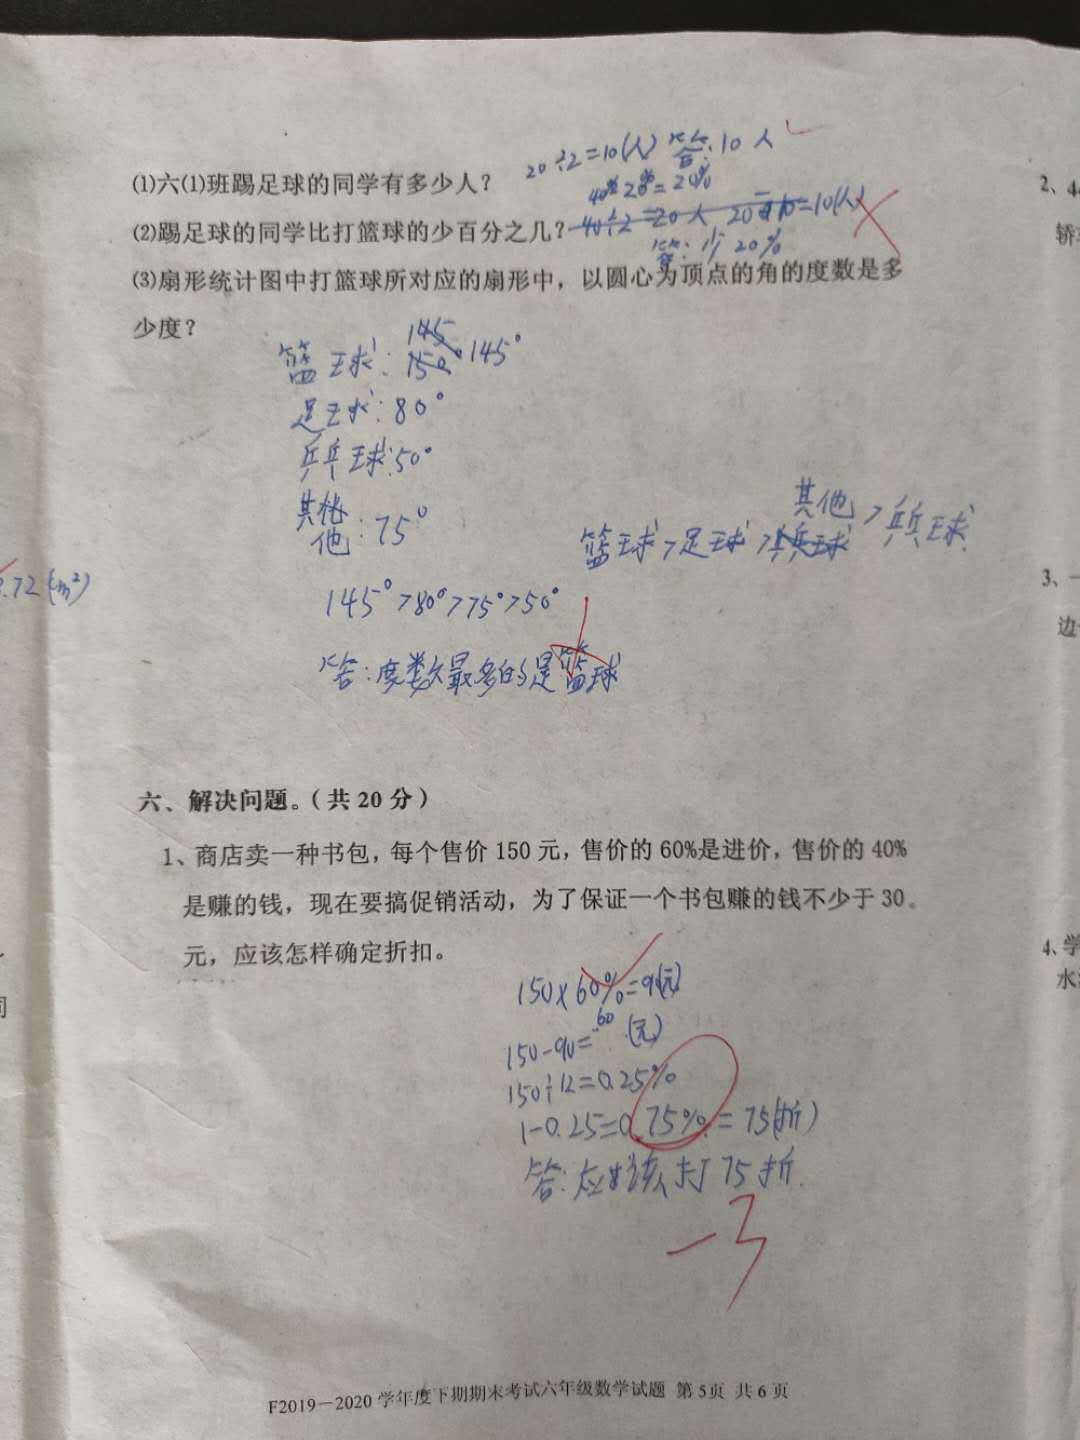 20÷2=10(人) 答:10人
(1)六(1)班踢足球的同学有多少人?
40% 20%=20%
(2)踢足球的同学比打篮球的少百分之几? 40÷2=20人 =10(人)
答:少20%
(3)扇形统计图中打篮球所对应的扇形中,以圆心为顶点的角的度数是多
少度?
145
篮球:150° 145°
足球:80°
乒乓球:50°
其他:75°
其他>乒乓球
篮球>足球>乒乓球
145°>80°>75°>50°
答:度数最多的是篮球
.72(m²)
六、解决问题。(共20分)
1、商店卖一种书包,每个售价150元,售价的60%是进价,售价的40%
是赚的钱,现在要搞促销活动,为了保证一个书包赚的钱不少于30
元,应该怎样确定折扣。
150×60%=9(元)
150-90=60(元)
150÷12=0.25%
1-0.25=0.75%=75(折)
答:应该打75折.
-3
F2019-2020学年度下期期末考试六年级数学试题 第5页 共6页
2、4
轿
3、一
边
4、学
水